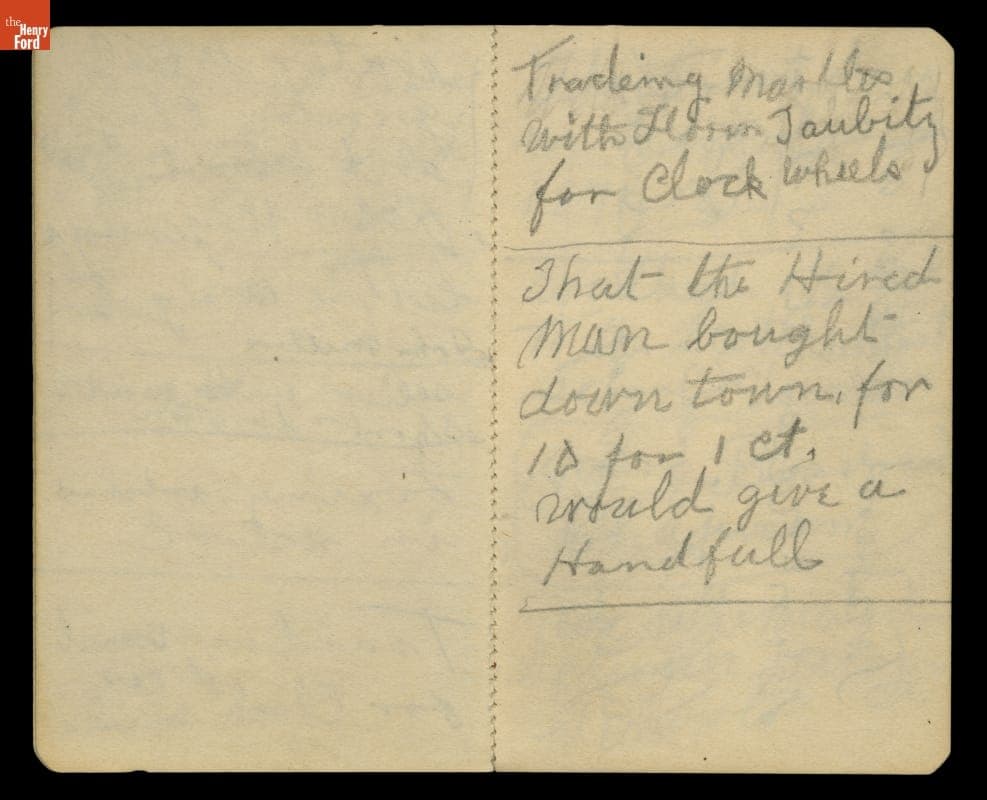 the
Henry
Ford
Tradeing Marbles
with Taubitz
for Clock wheels
That the Hired
Man bought
down town, for
10 for 1 ct.
would give a
Handfull